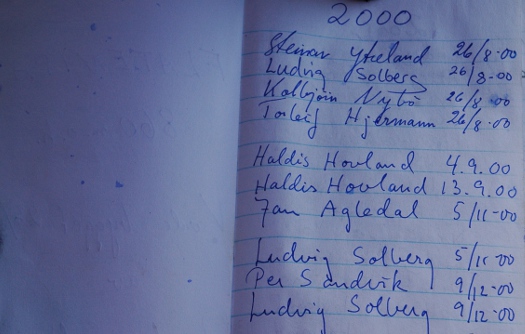 2000
Steinar Ytreland 26/8-00
Ludvig Solberg 26/8-00
Kolbjörn Nybö 26/8-00
Torleif Hjermann 26/8-00
Haldis Hovland 4.9.00
Haldis Hovland 13.9.00
Jan Agledal 5/11-00
Ludvig Solberg 5/11-00
Per Sandvik 9/12-00
Ludvig Solberg 9/12-00